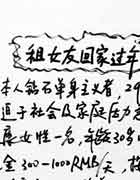 租女友回家过年
本人钻石单身主义者，29
迫于社会及家庭压力
女性一名，年龄30岁
金300-1000RMB/天，